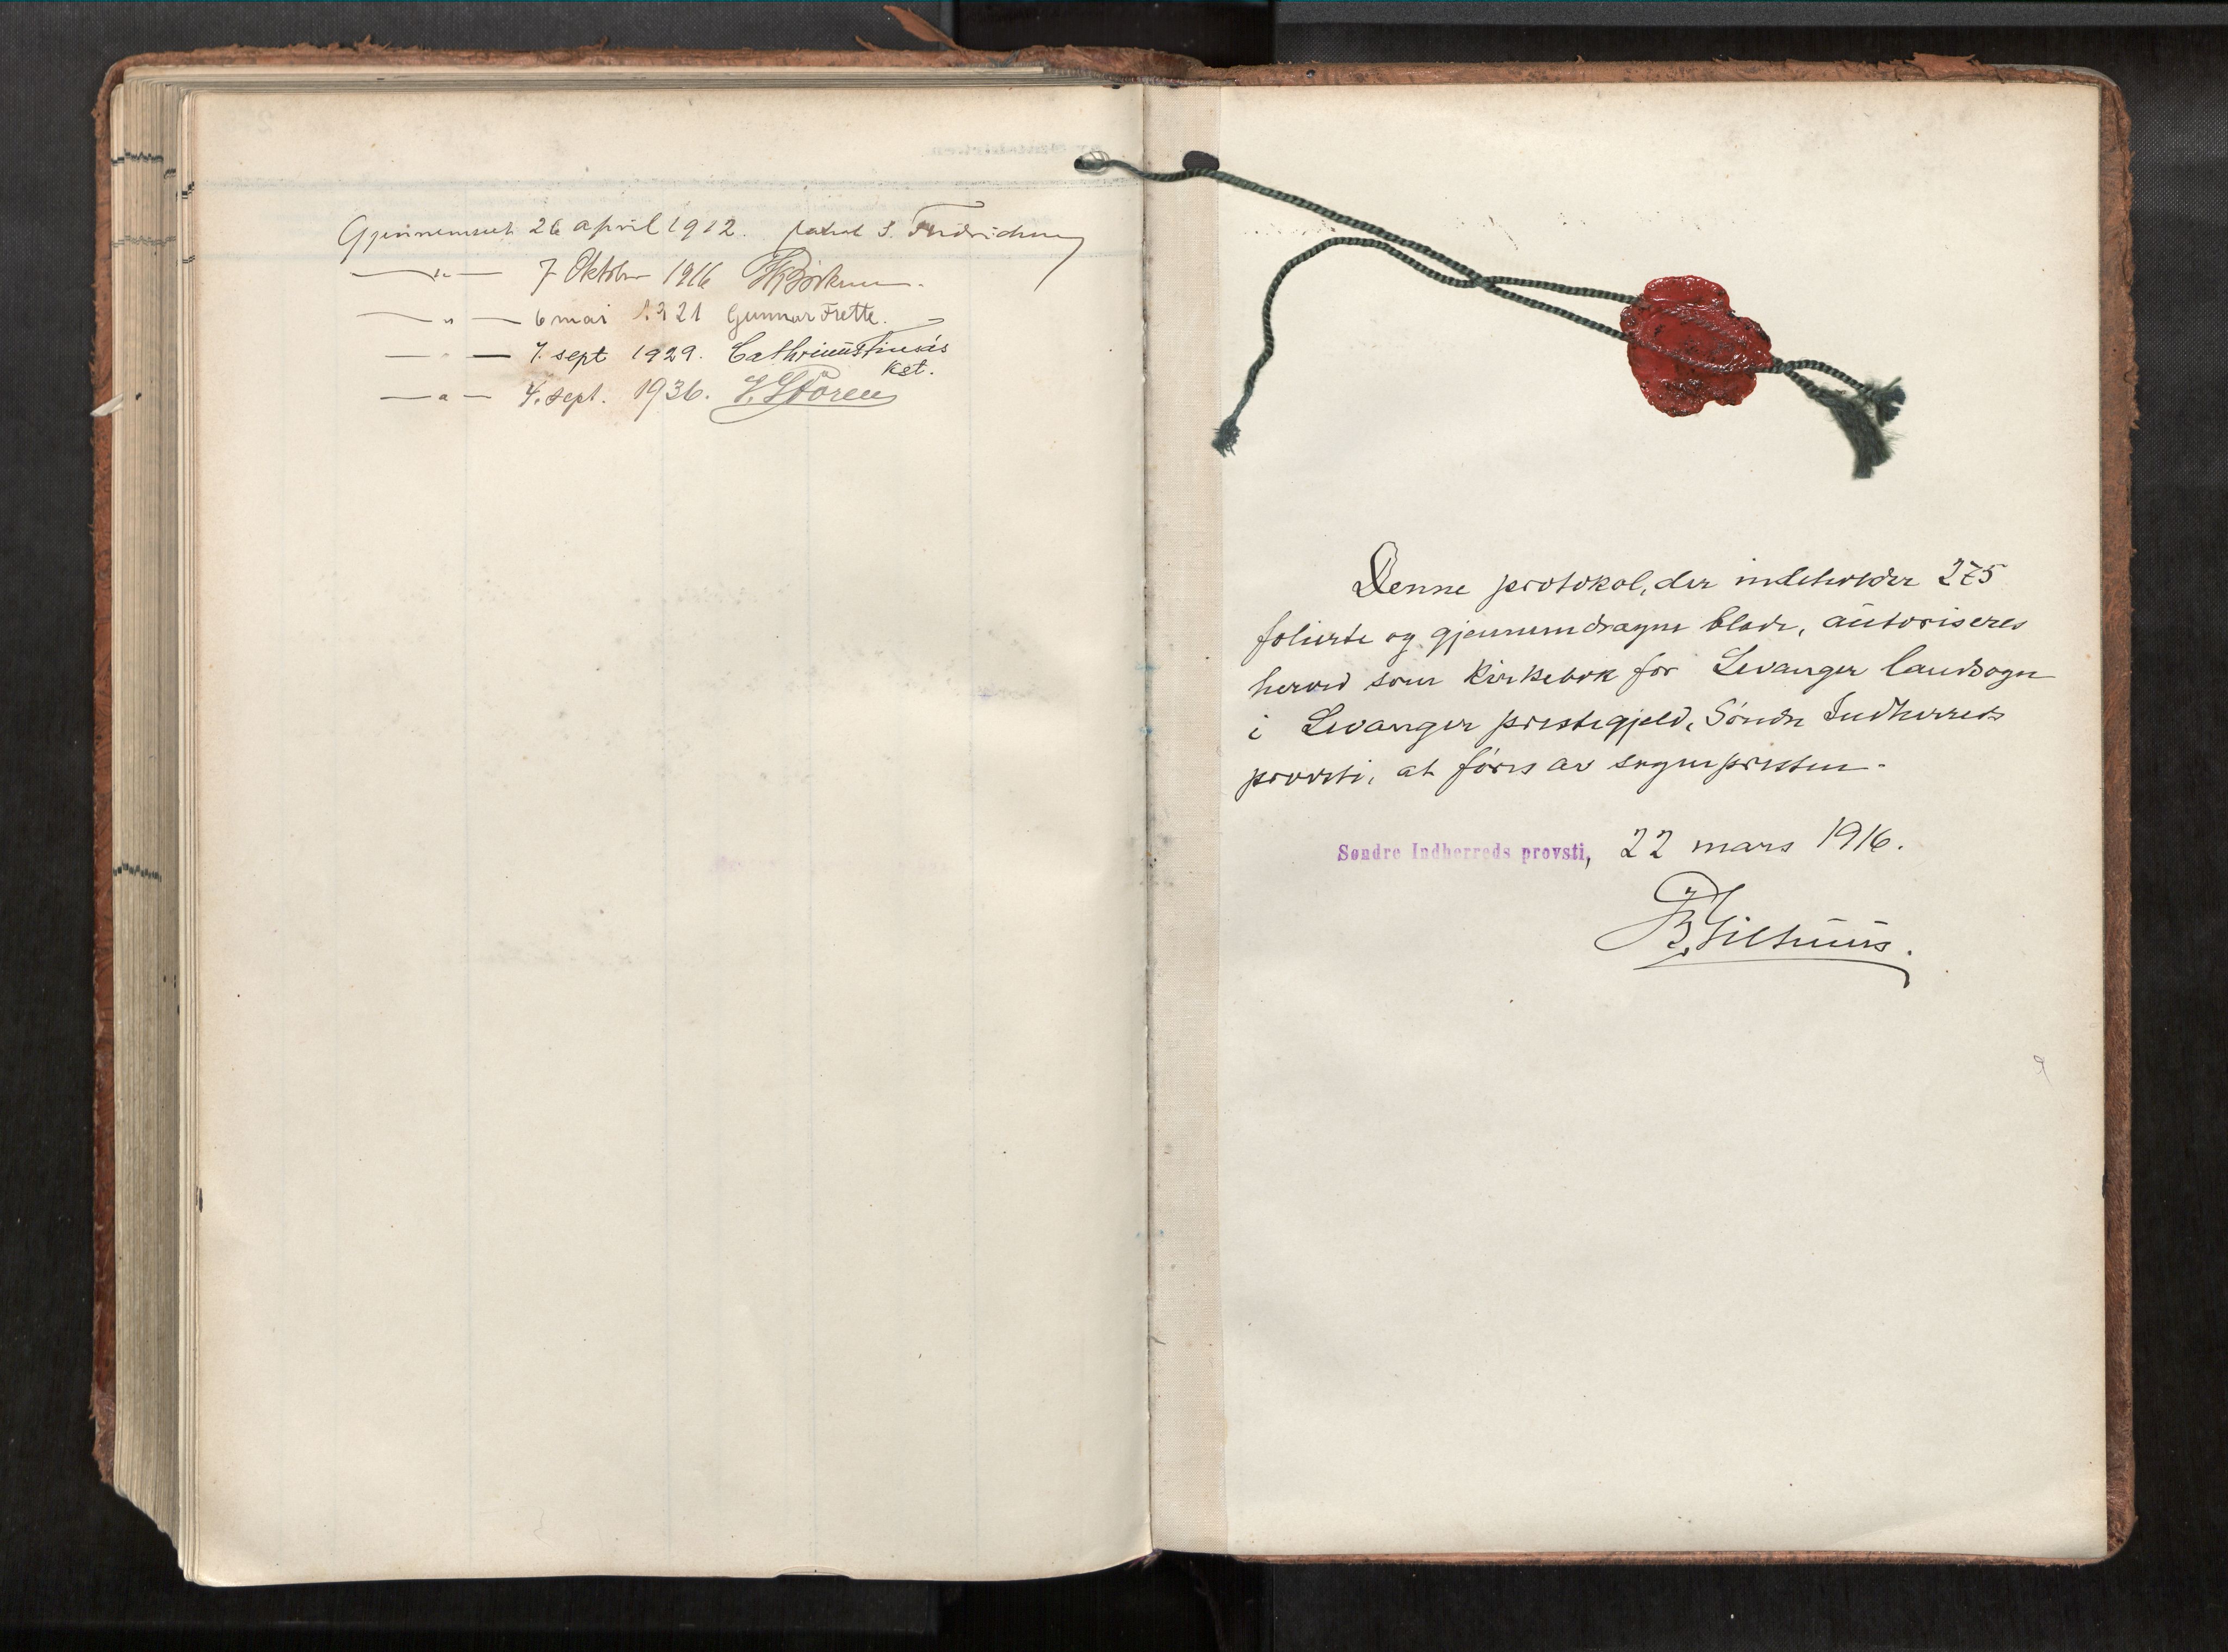 Gjennemset 26 april 1912. J. Fridrichsen
—〃— 7 Oktober 1916
—〃— 6 mai 1921 Gunnar Frette.
—〃— 7. sept 1929. Cathrinus
kst.
—〃— 4. sept. 1936. Støren
Denne protokol, der indeholder 275
folierte og gjennemdragne blade, autoriseres
herved som kirkebok for Levanger landsogn
i Levanger prestegjeld, Søndre Indherreds
provsti, at føres av sognepresten.
Søndre Indherreds provsti, 22 mars 1916.